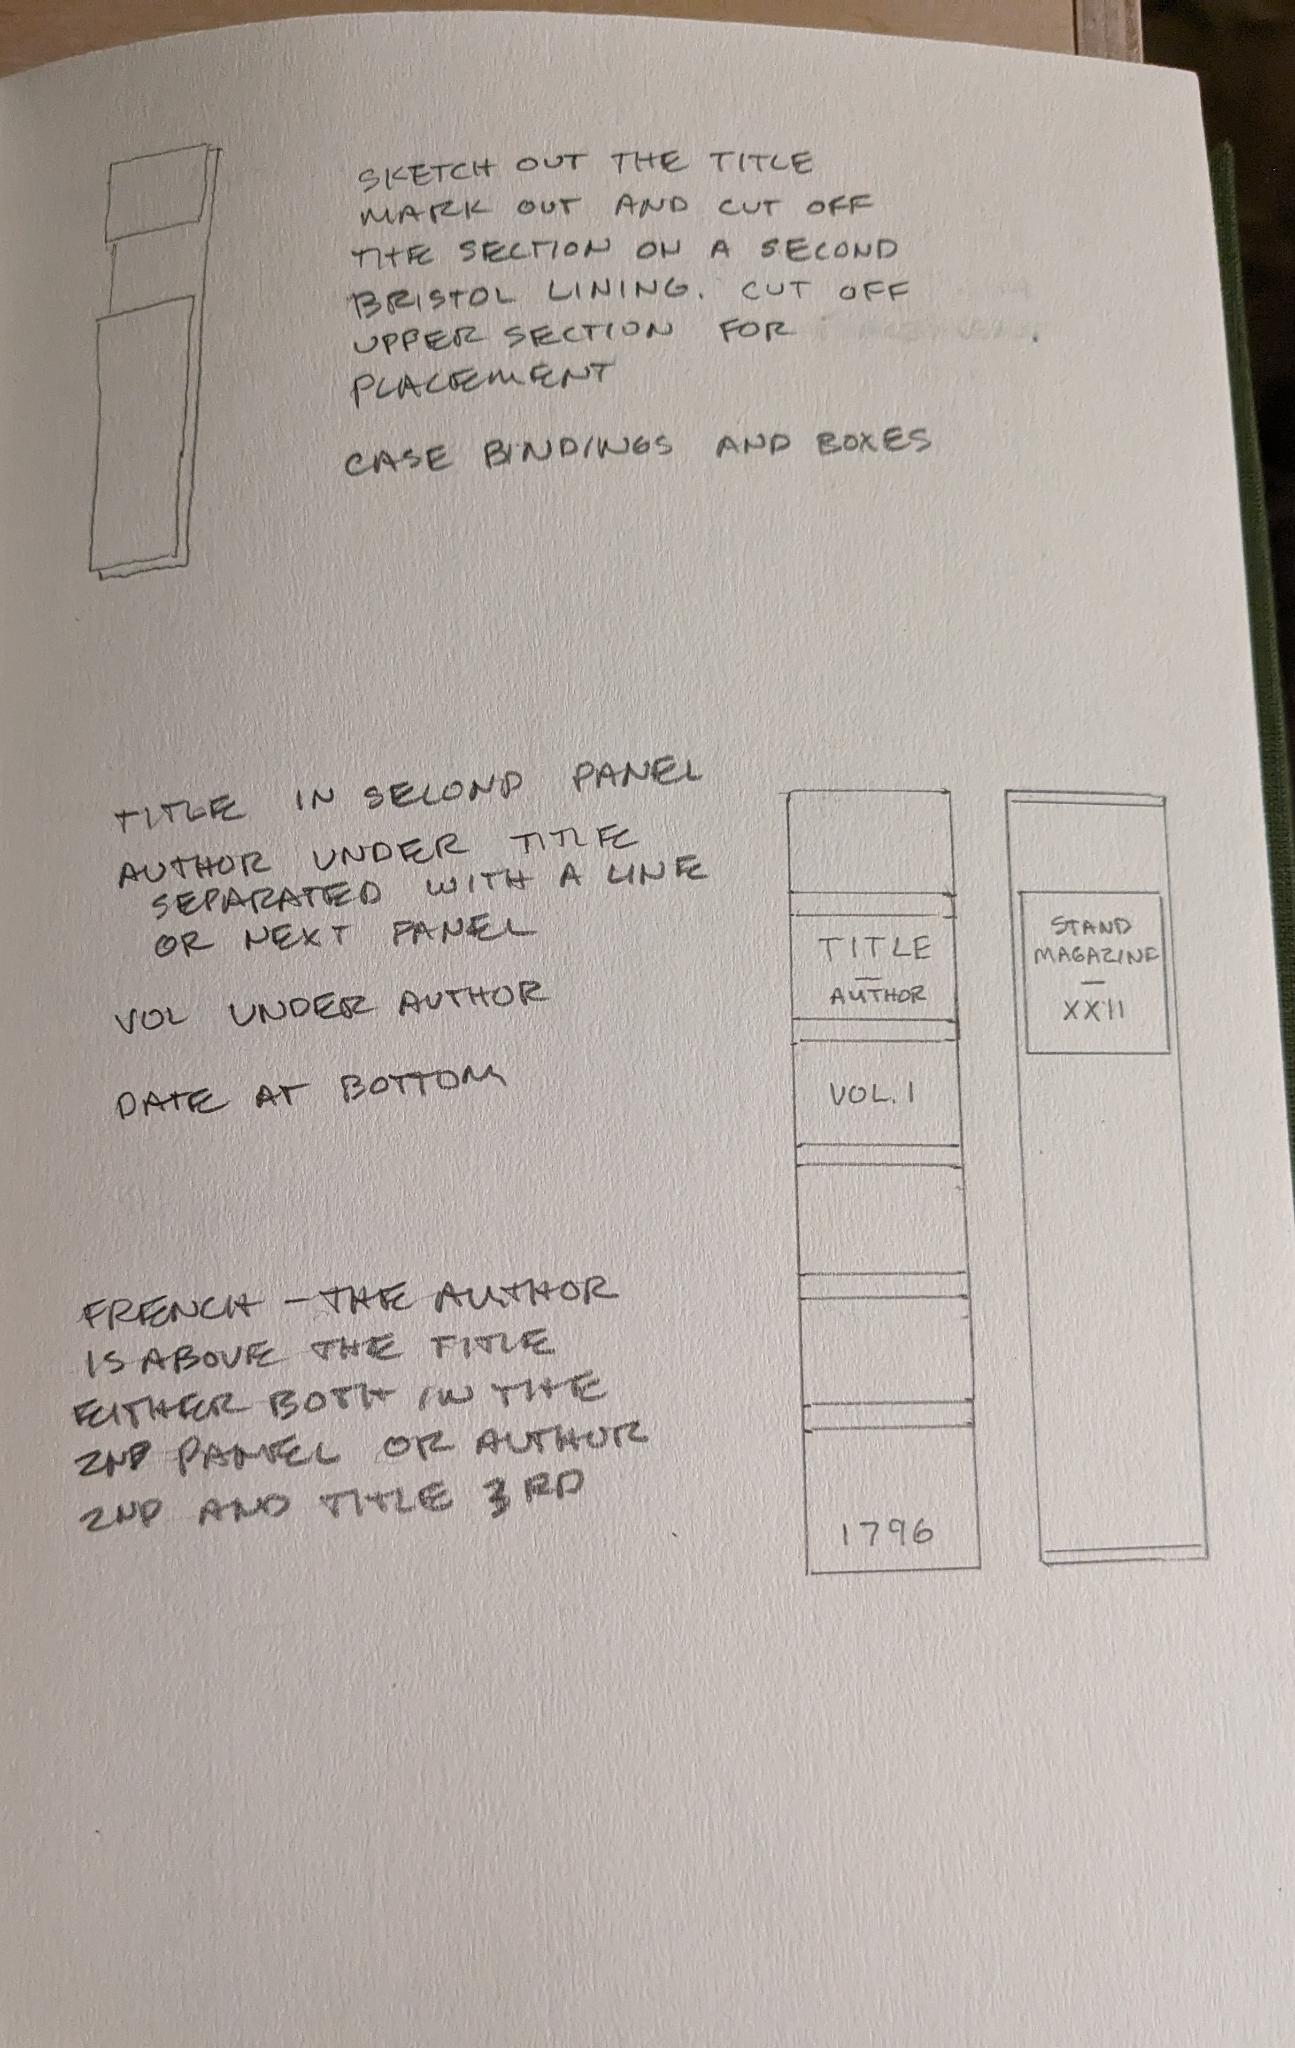 SKETCH OUT THE TITLE
MARK OUT AND CUT OFF
THE SECTION ON A SECOND
BRISTOL LINING. CUT OFF
UPPER SECTION FOR
PLACEMENT
CASE BINDINGS AND BOXES
TITLE IN SECOND PANEL
AUTHOR UNDER TITLE
SEPARATED WITH A LINE
OR NEXT PANEL
VOL UNDER AUTHOR
DATE AT BOTTOM
FRENCH - THE AUTHOR
IS ABOVE THE TITLE
EITHER BOTH IN THE
2ND PANEL OR AUTHOR
2ND AND TITLE 3RD
TITLE
—
AUTHOR
VOL. 1
1796
STAND
MAGAZINE
—
XXII